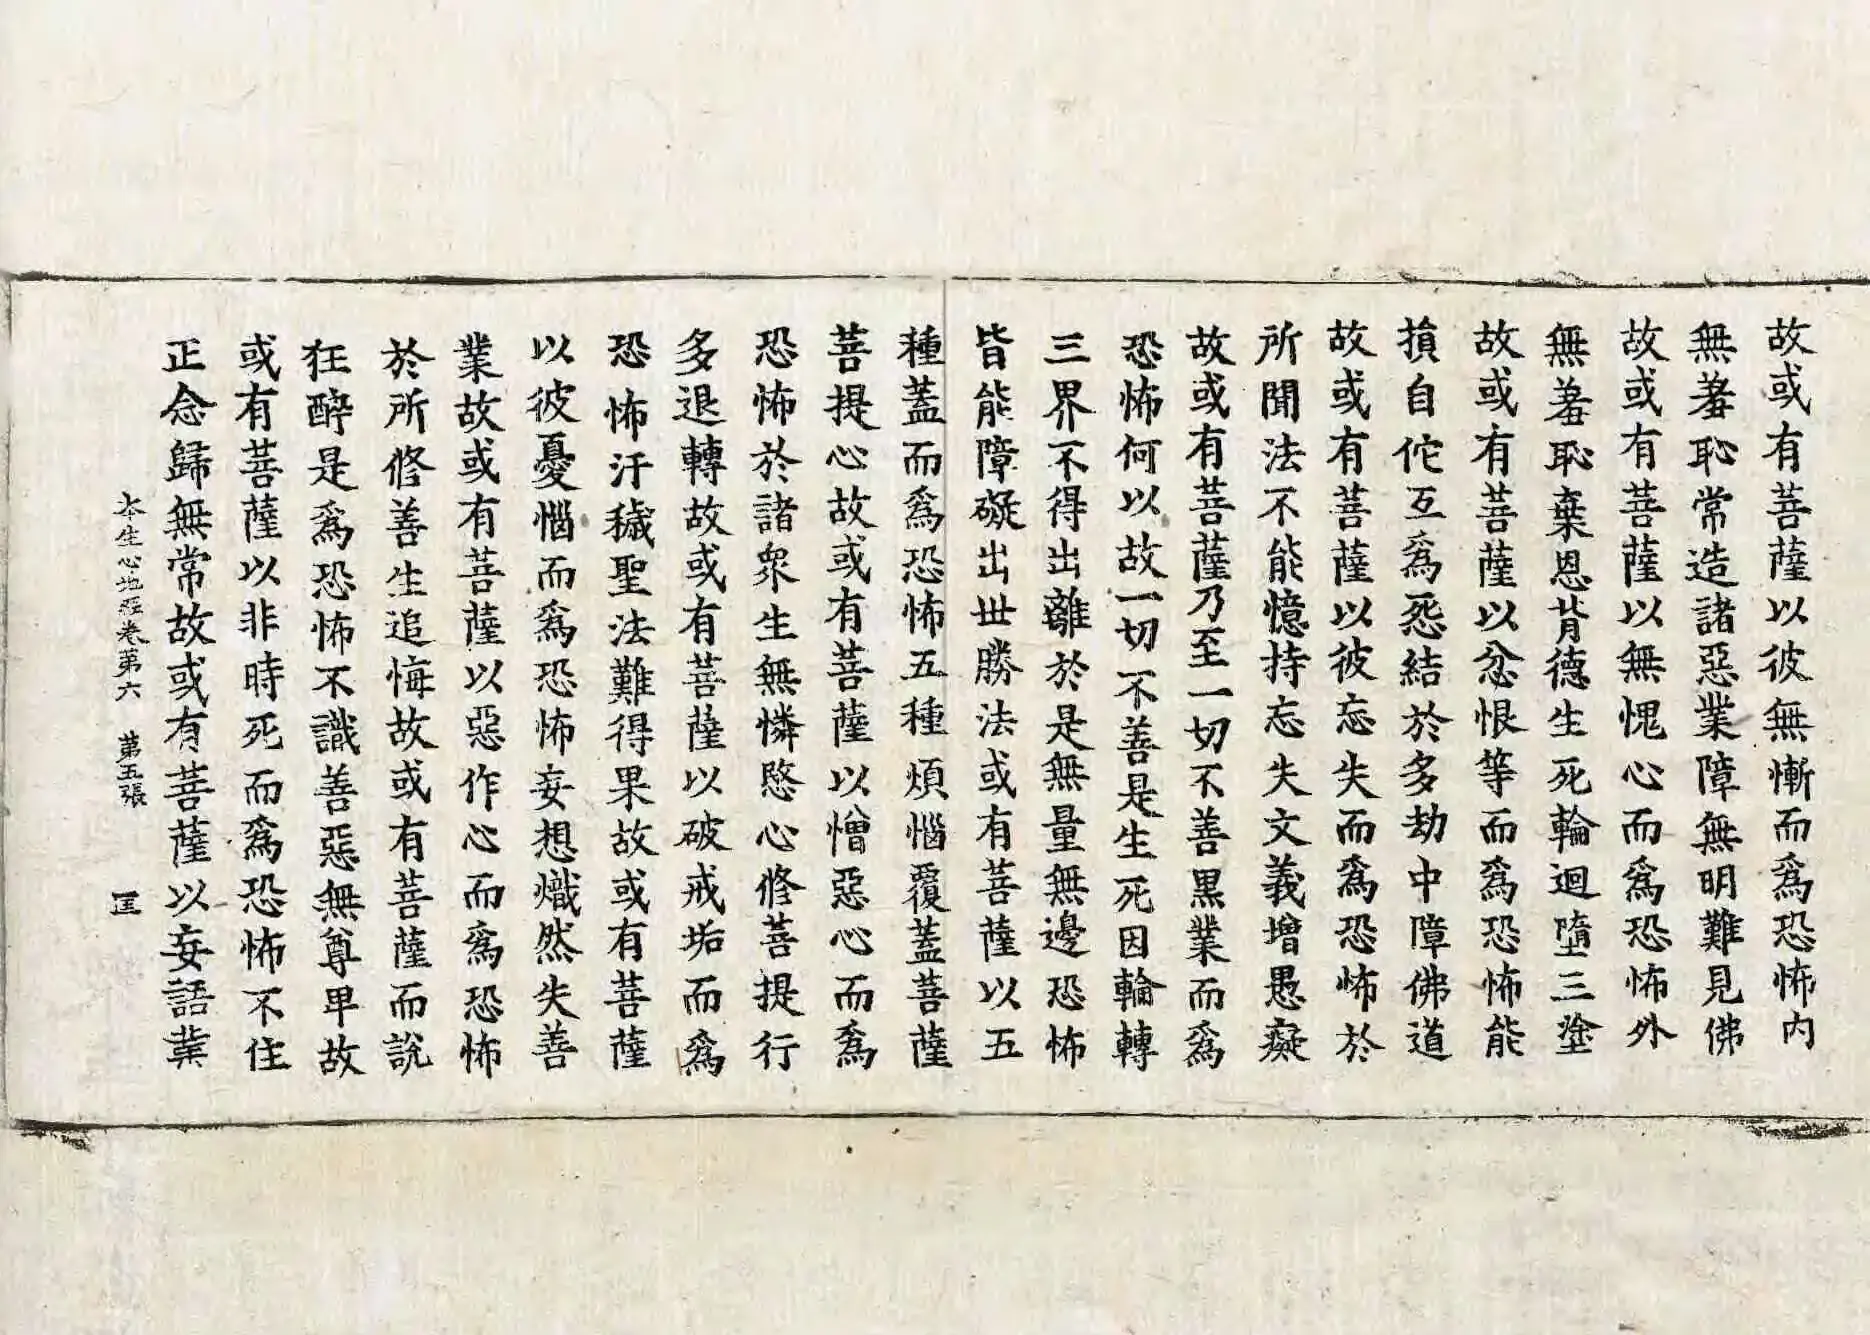 故或有菩薩以彼無慚而爲恐怖內
無羞恥常造諸惡業障無明難見佛
故或有菩薩以無愧心而爲恐怖外
無羞恥棄恩背德生死輪迴墮三塗
故或有菩薩以忿恨等而爲恐怖能
損自佗互爲惌結於多劫中障佛道
故或有菩薩以彼忘失而爲恐怖於
所聞法不能憶持忘失文義增愚癡
故或有菩薩乃至一切不善黑業而爲
恐怖何以故一切不善是生死因輪轉
三界不得出離於是無量無邊恐怖
皆能障礙出世勝法或有菩薩以五
種蓋而爲恐怖五種煩惱覆蓋菩薩
菩提心故或有菩薩以憎惡心而爲
恐怖於諸衆生無憐愍心修菩提行
多退轉故或有菩薩以破戒垢而爲
恐怖汙穢聖法難得果故或有菩薩
以彼憂惱而爲恐怖妄想熾然失善
業故或有菩薩以惡作心而爲恐怖
於所修善生追悔故或有菩薩而說
狂醉是爲恐怖不識善惡無尊卑故
或有菩薩以非時死而爲恐怖不住
正念歸無常故或有菩薩以妄語業
本生心地經卷第六 第五張 匡